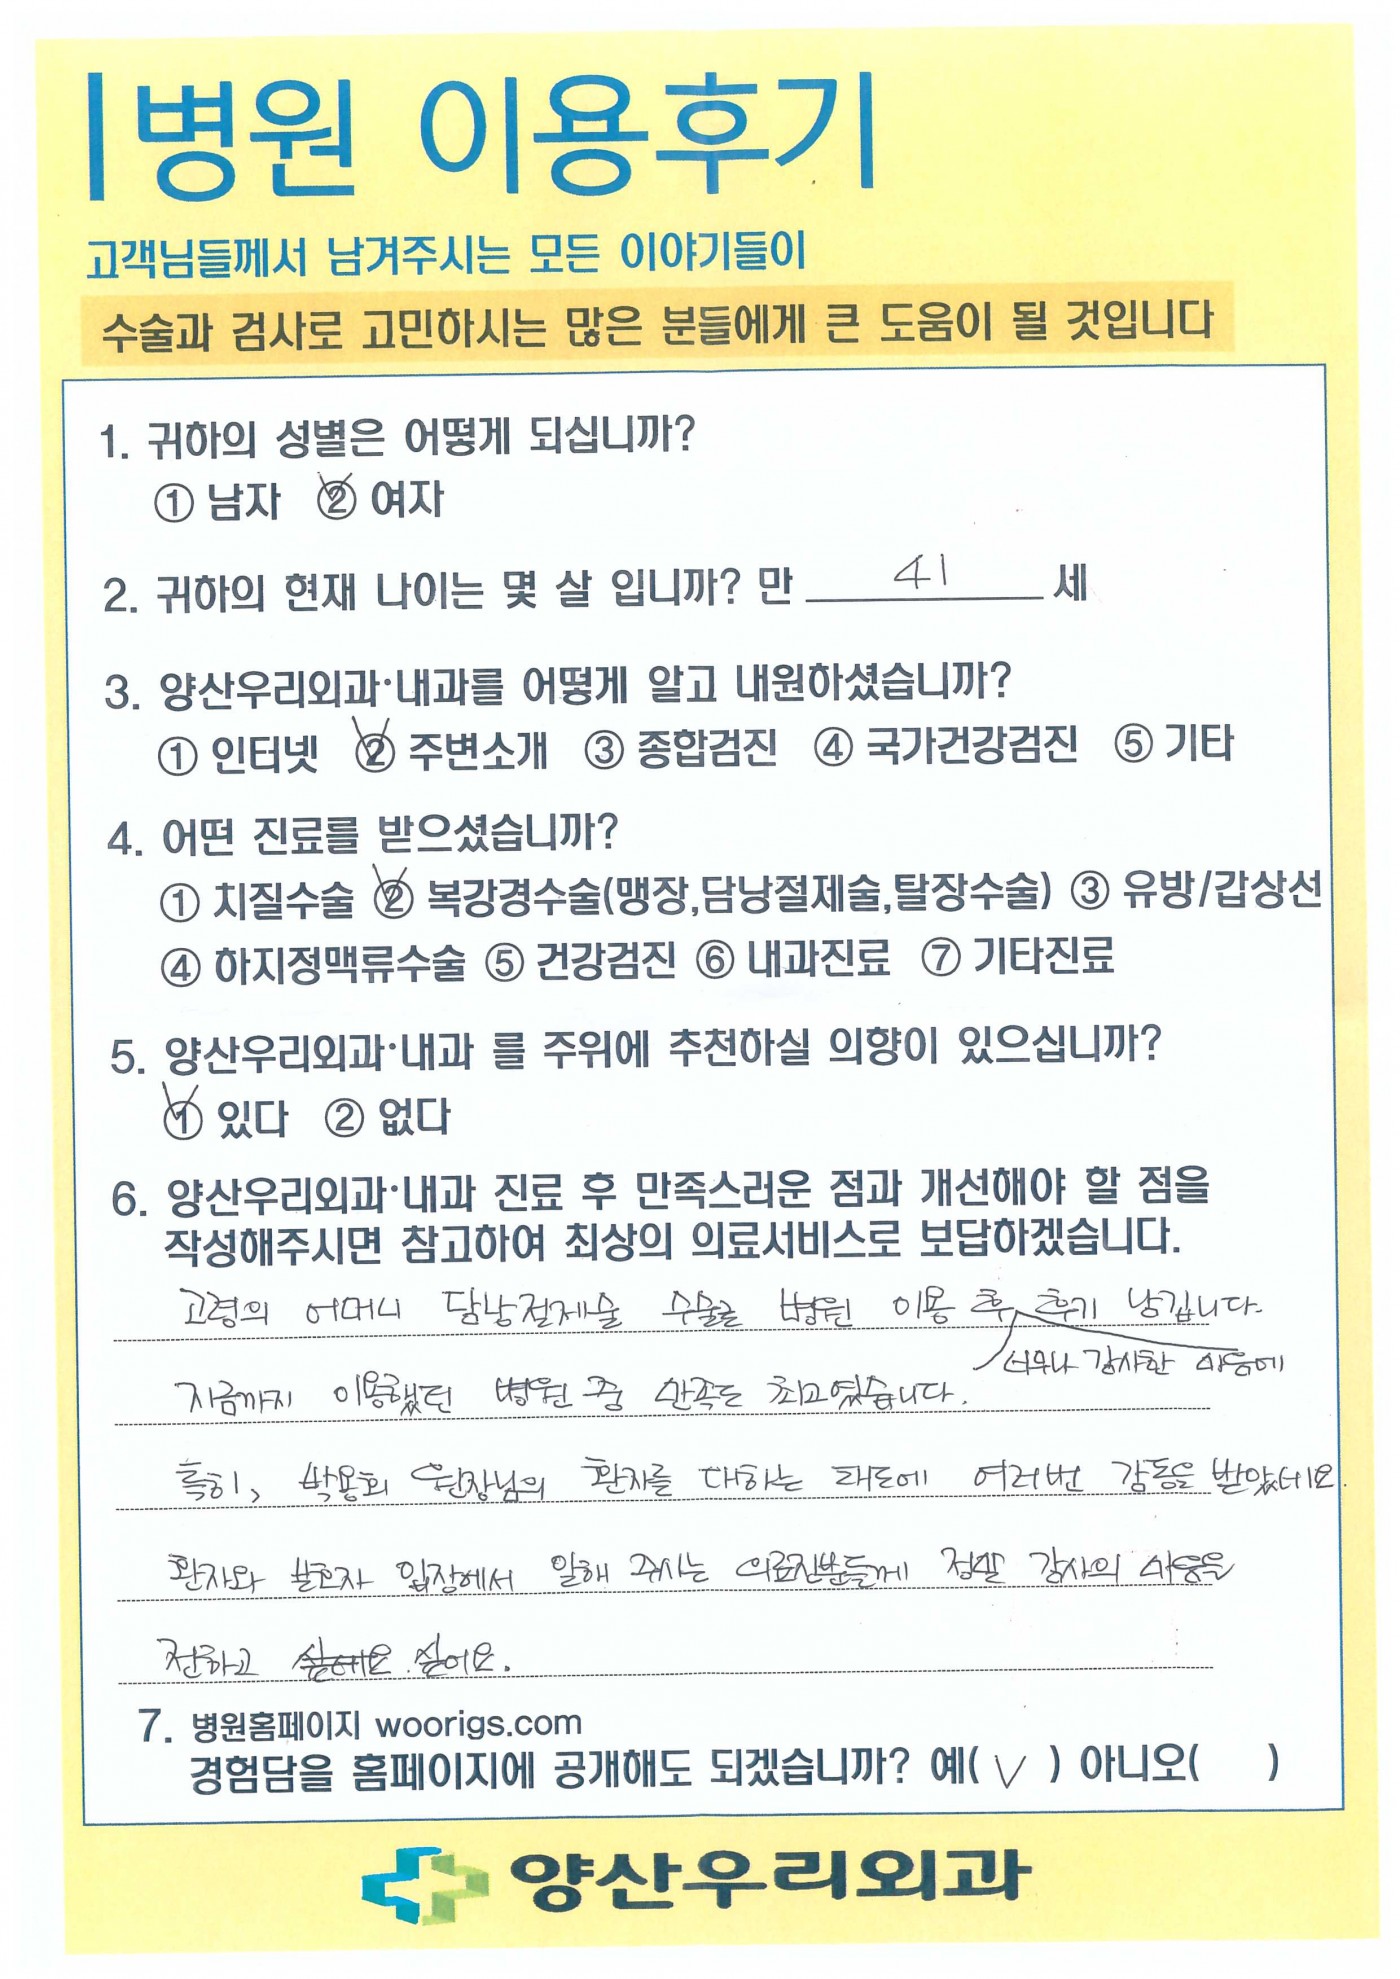 병원 이용후기
고객님들께서 남겨주시는 모든 이야기들이
수술과 검사로 고민하시는 많은 분들에게 큰 도움이 될 것입니다
1. 귀하의 성별은 어떻게 되십니까?
① 남자 ② 여자
2. 귀하의 현재 나이는 몇 살 입니까? 만 41 세
3. 양산우리외과·내과를 어떻게 알고 내원하셨습니까?
① 인터넷 ② 주변소개 ③ 종합검진 ④ 국가건강검진 ⑤ 기타
4. 어떤 진료를 받으셨습니까?
① 치질수술 ② 복강경수술(맹장,담낭절제술,탈장수술) ③ 유방/갑상선
④ 하지정맥류수술 ⑤ 건강검진 ⑥ 내과진료 ⑦ 기타진료
5. 양산우리외과·내과 를 주위에 추천하실 의향이 있으십니까?
① 있다 ② 없다
6. 양산우리외과·내과 진료 후 만족스러운 점과 개선해야 할 점을
작성해주시면 참고하여 최상의 의료서비스로 보답하겠습니다.
고령의 어머니 담낭절제술 수술로 병원 이용 후 후기 남깁니다.
너무나 감사한 마음에
지금까지 이용했던 병원 중 만족도 최고였습니다.
특히, 박용회 원장님의 환자를 대하는 태도에 여러번 감동을 받았네요.
환자와 보호자 입장에서 일해 주시는 의료진분들께 정말 감사의 마음을
전하고 싶어요.
7. 병원홈페이지 woorigs.com
경험담을 홈페이지에 공개해도 되겠습니까? 예( V ) 아니오( )
양산우리외과